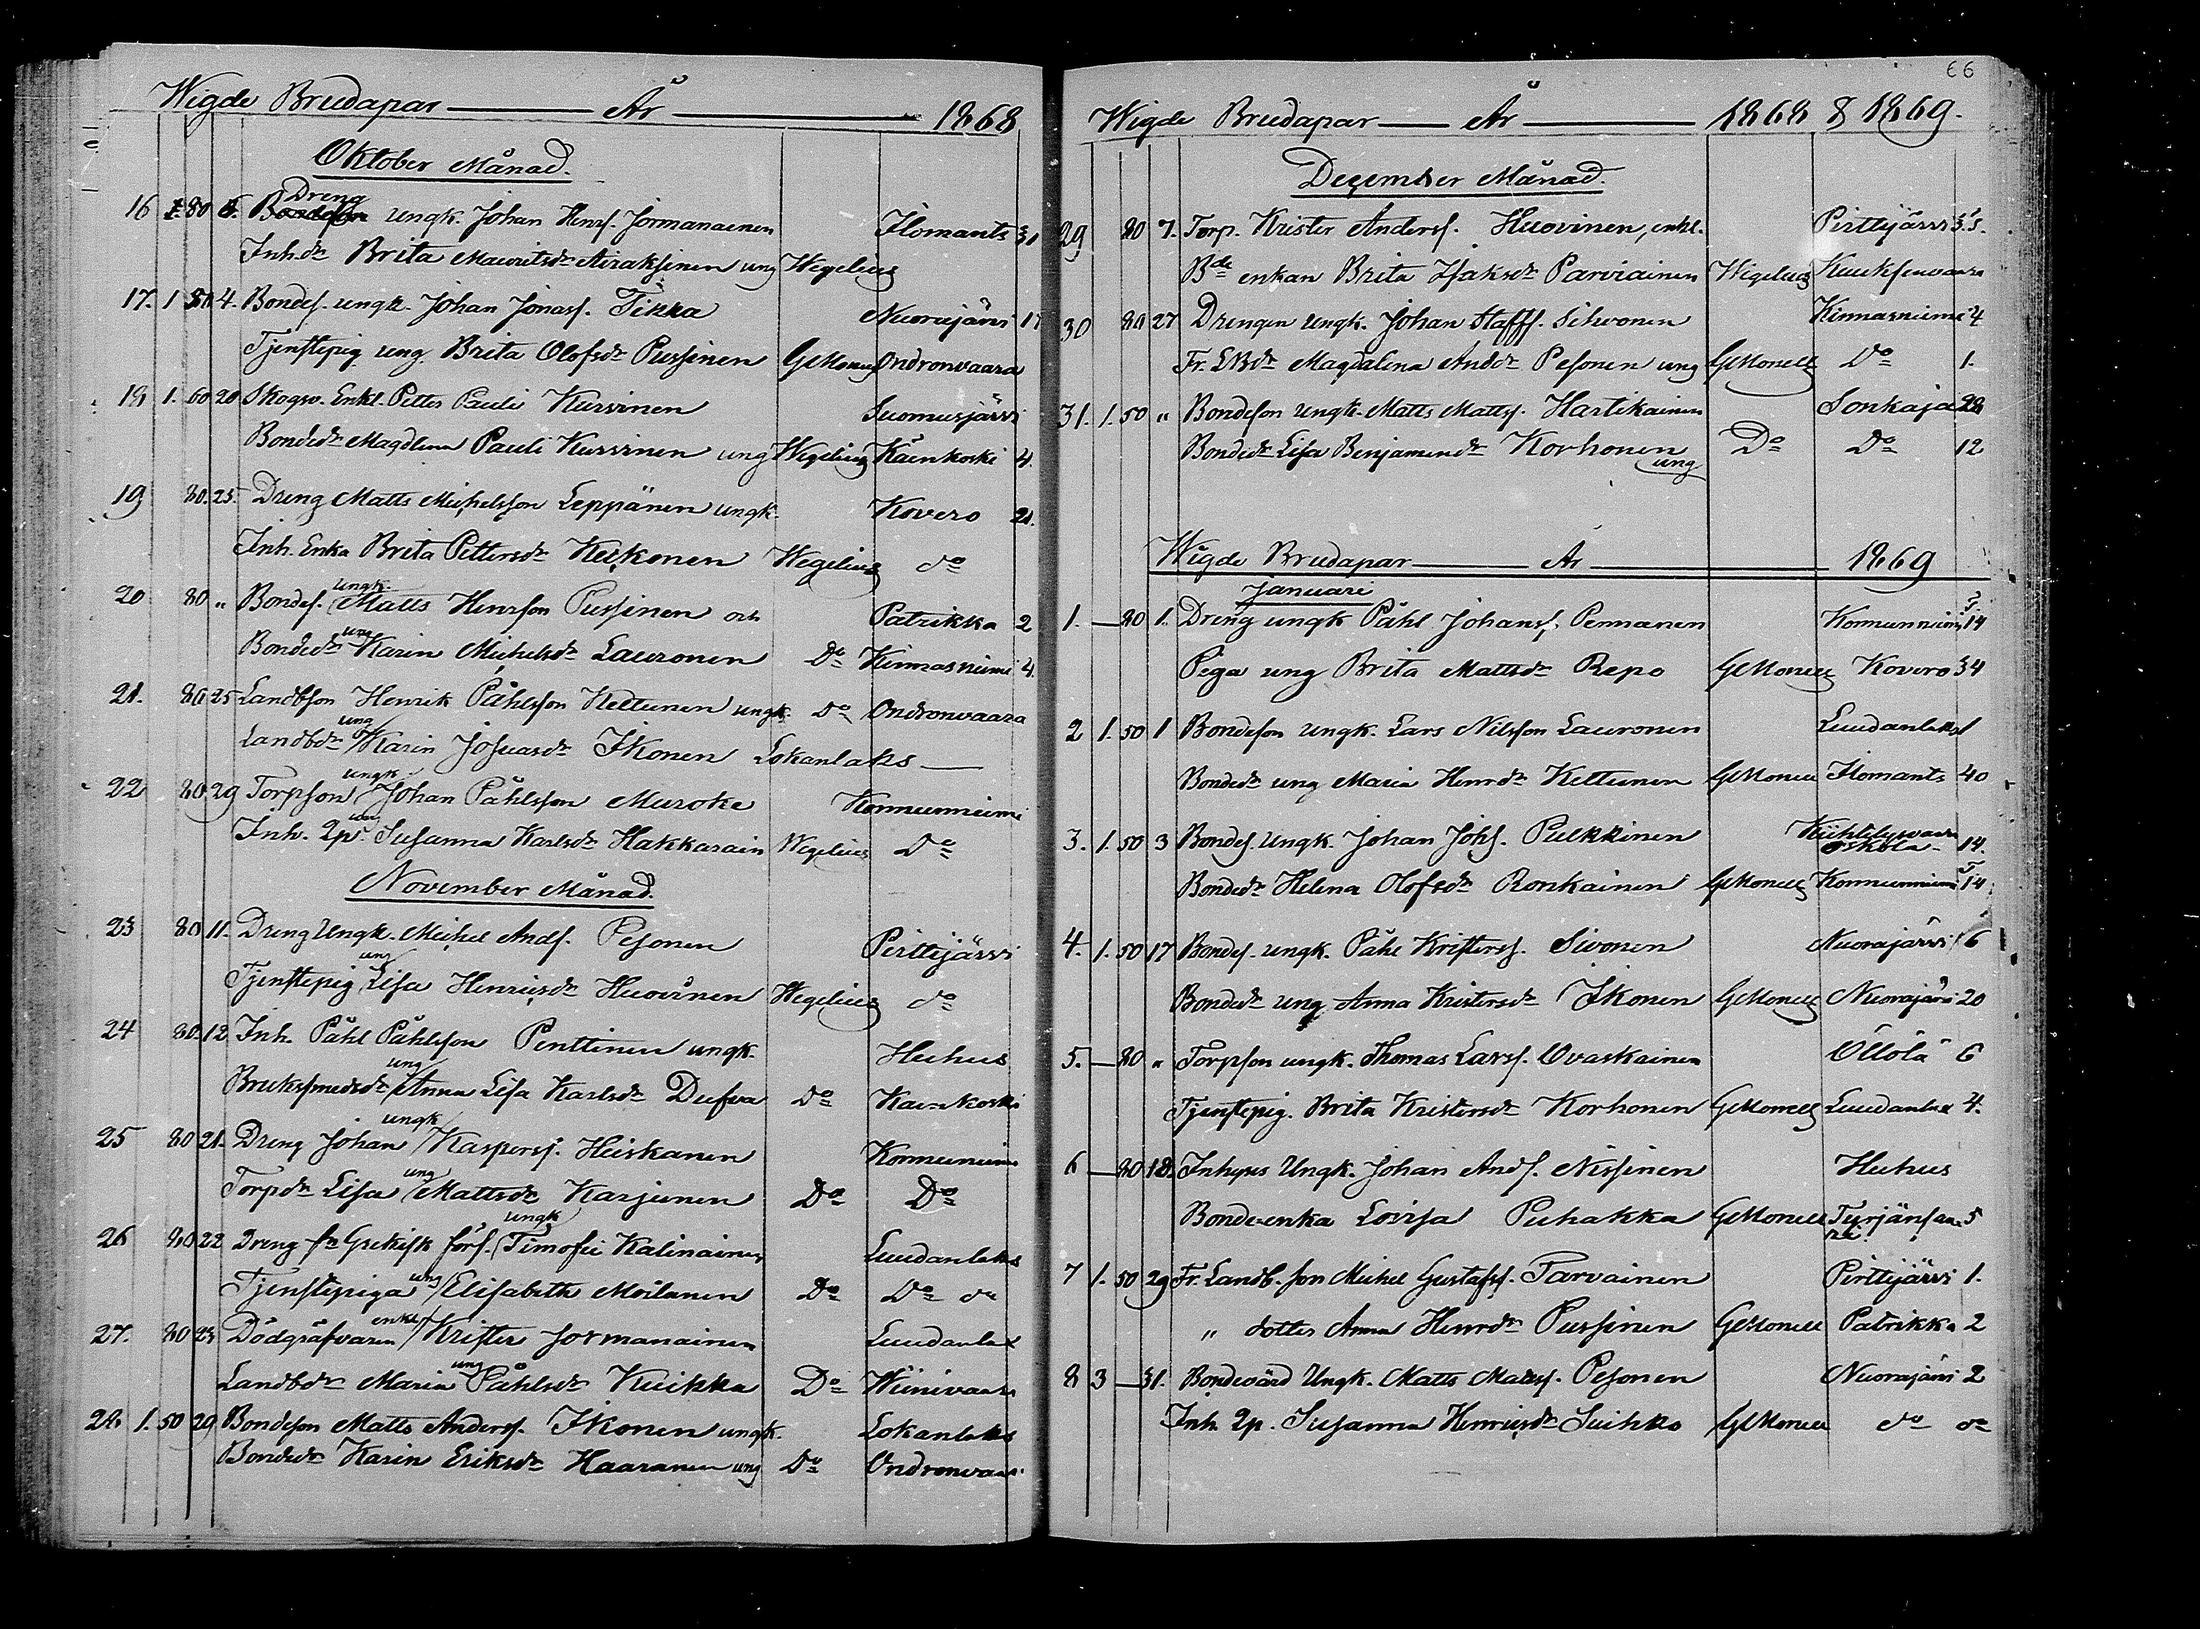 Wigde Brudapar År 1868
Oktober Månad.
16 80 6. Dreng
Bondeson ungk. Johan Henrs. Jormanainen Ilomants 31
Inh.dr Brita Mauritsdr Airaksinen ung Wegelius
17. 1 50 4. Bondes. ungk. Johan Jonass. Tikka Nuorajärvi 17
Tjenstepig ung Brita Olofsdr Pussinen GMonell Ondronvaara
18 1. 60 20 Skogsv. Enkl. Petter Pauli Kurvinen Suomusjärvi
Bondedr Magdlena Pauli Kurvinen ung Wegelius Käenkoski 4.
19 80. 25. Dreng Matts Michelsson Leppänen ungk. Kovero 21.
Inh. Enka Brita Pettersdr Keikonen Wegelius do
20 80 " Bondes. ungk. Matts Henrsson Pussinen och Patrikka 2
Bondedr ung Karin Michelsdr Lauronen Do Kinnasniemi 4.
21. 80 25 Landbson Henrik Påhlsson Kettunen ungk. Do Ondronvaara
Landbdr ung Karin Josuasdr Ikonen Lokanlaks
22 80 29 Torpson ungk Johan Påhlsson Muroke Konnunniemi
Inh. 2ps ung Susanna Karlsdr Hakkarain Wegelius Do
November Månad.
23 80 11. Dreng Ungk. Michel Ands. Pesonen Pirttijärvi
Tjenstepig ung Lisa Henricsdr Huovinen Wegelius do
24 80. 12 Inh. Påhl Påhlsson Penttinen ungk. Huhus
Bruksmedsdr ung Anna Lisa Karlsdr Dufva Do Käenkoski
25 80 21. Dreng Johan ungk Kaspers. Heiskanen Konnunniemi
Torpdr Lisa ung Mattsdr Karjunen Do Do
26 80 22 Dreng fr Grekisk förs. ungk Timofei Kalinainen Luudanlaks
Tjenstepiga ung Elisabeth Moilanen Do Do do
27. 80 23 Dödgräfvaren enkl Krister Jormanainen Luudanlax
Landbdr Maria ung Påhlsdr Kuikka Do Wiinivaara
28. 1. 50 29 Bondeson Matts Anders. Ikonen ungk. Lokanlaks
Bondedr Karin Eriksdr Haaranen ung Do Ondronvaara
66
Wigde Brudapar År 1868 & 1869.
December Månad.
29 80 7. Torp. Krister Anders. Huovinen, enkl. Pirttijärvi 35.
Bde enkan Brita Isaksdr Parviainen Wigelius Kuuksenvaara
30 80 27 Drengen Ungk. Johan Staffs. Sihvonen Kinnasniemi 4
Fr. LBdr Magdalena Anddr Pesonen ung GMonell Do 1.
31. 1. 50 " Bondeson Ungk. Matts Matts. Hartikainen Sonkaja 28
Bondedr Lisa Benjamindr Korhonen ung Do Do 12
Wigde Brudapar År 1869
Januari
1. — 80 1. Dreng ungk Påhl Johans. Pennanen Konnunniemi 14
Piga ung Brita Mattsdr Repo GMonell Kovero 34
2 1. 50 1 Bondeson ungk. Lars Nilsson Lauronen Luudanlaks 1
Bondedr ung Maria Henrdr Kettunen GMonell Ilomants 40
3. 1. 50 3 Bondes. Ungk. Johan Johs. Pulkkinen Kiihtelysvaara Oskola 14.
Bondedr Helena Olofsdr Ronkainen GMonell Konnunniemi 14
4. 1. 50 17 Bondes. ungk. Påhl Kristers. Sivonen Nuorajärvi 6
Bondedr ung Anna Kristersdr Ikonen GMonell Nuorajärvi 20
5. — 80 " Torpson ungk. Thomas Larss. Ovaskainen Öllölä 6
Tjenstepig. Brita Kristersdr Korhonen GMonell Luudanlax 4.
6 — 80 18. Inhyses Ungk. Johan Ands. Nissinen Huhus
Bonde-enka Lovisa Puhakka GMonell Tyrjänsaari 5
7 1. 50 29 Fr. Landb. son Michel Gustafs. Tarvainen Pirttijärvi 1.
" dotter Anna Henrdr Pussinen GMonell Patrikka 2
8 3 — 31. Bondevärd Ungk. Matts Matts. Pesonen Nuorajärvi 2
Inh. 2p. Susanna Henricsdr Suihko GMonell do do